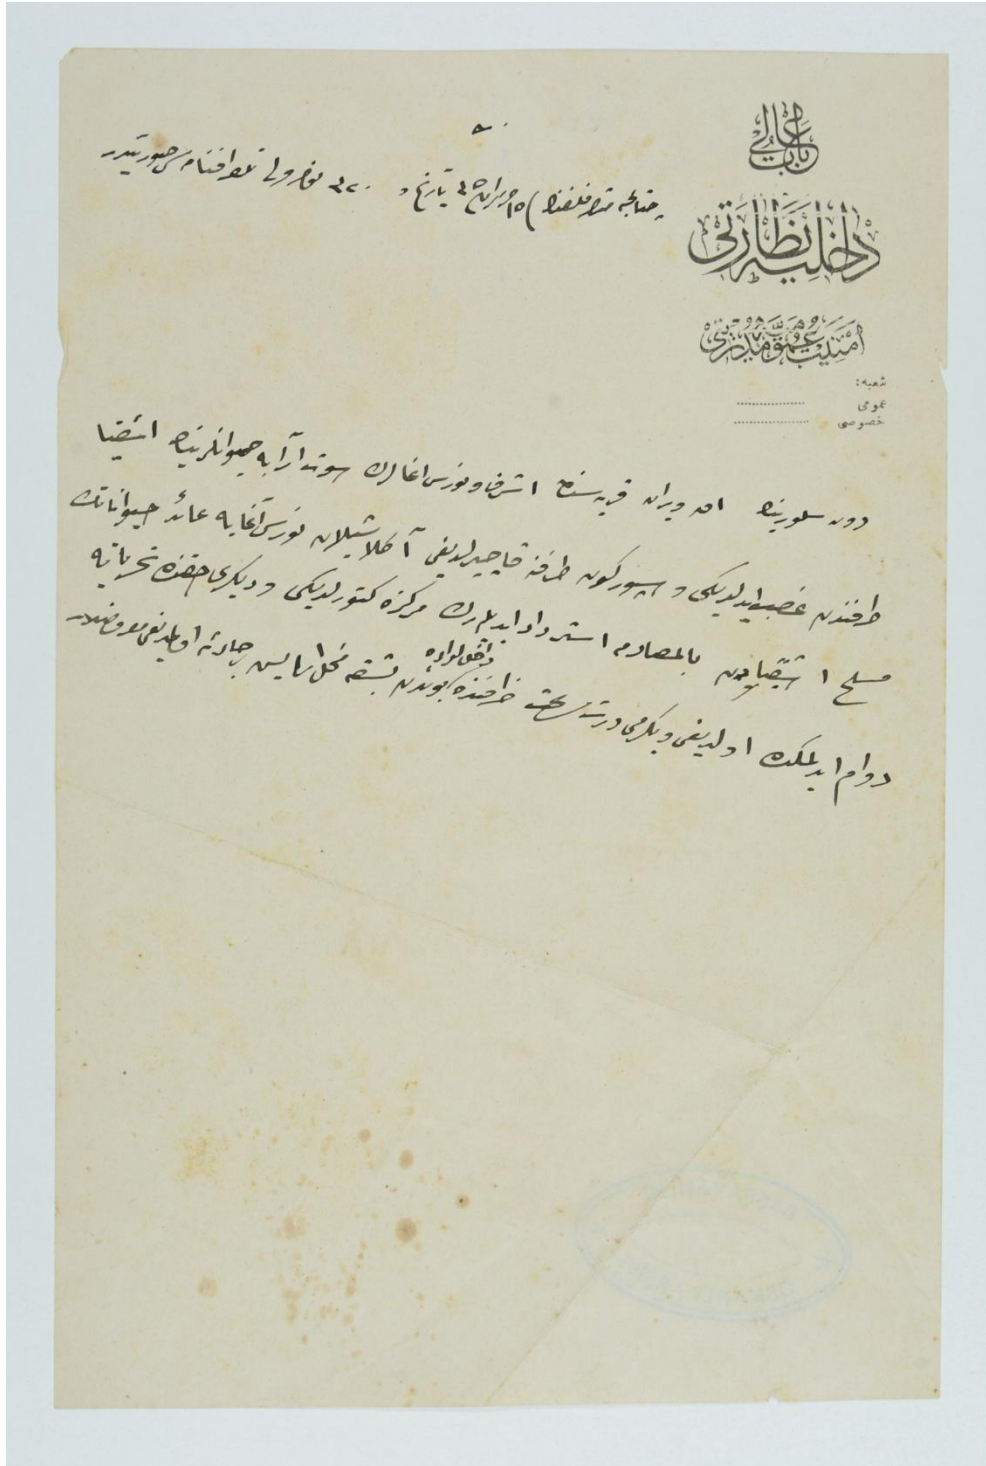 باب عالی
داخلیه نظارتی
امنیت عمومیه مدیریتی
شعبه:
عمومی
خصوصی
چتالجه متصرفلغنك ١٥ حزیران تاریخ و نومرولی تلغرافنامه سی صورتیدر
دون سلوری نك ویران قریه سنده اشرف و نورس اغالرك سوت آرابه حیوانلرینك اشقیا
طرفندن غصب ایدلدیكی و كون طرفنه قاچیرلدیغی آكلاشیلان نورس آغایه عائد حیواناتك
مسلح اشقیادن بالمصادمه استرداد ایدیله رك مركزه كتورلدیكی و دیكری حقنده تحریاته
دوام ایدلمكده اولدیغی ویكرمی درت ساعت ظرفنده داخل لواده بوندن بشقه مخل آسایش بر حادثه اولمدیغی معروضدر